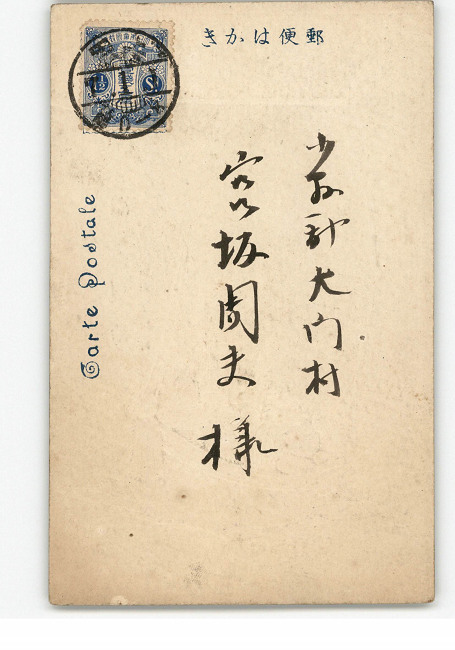 郵便はかき
小縣郡大門村
宮坂夫様
Carte Postale